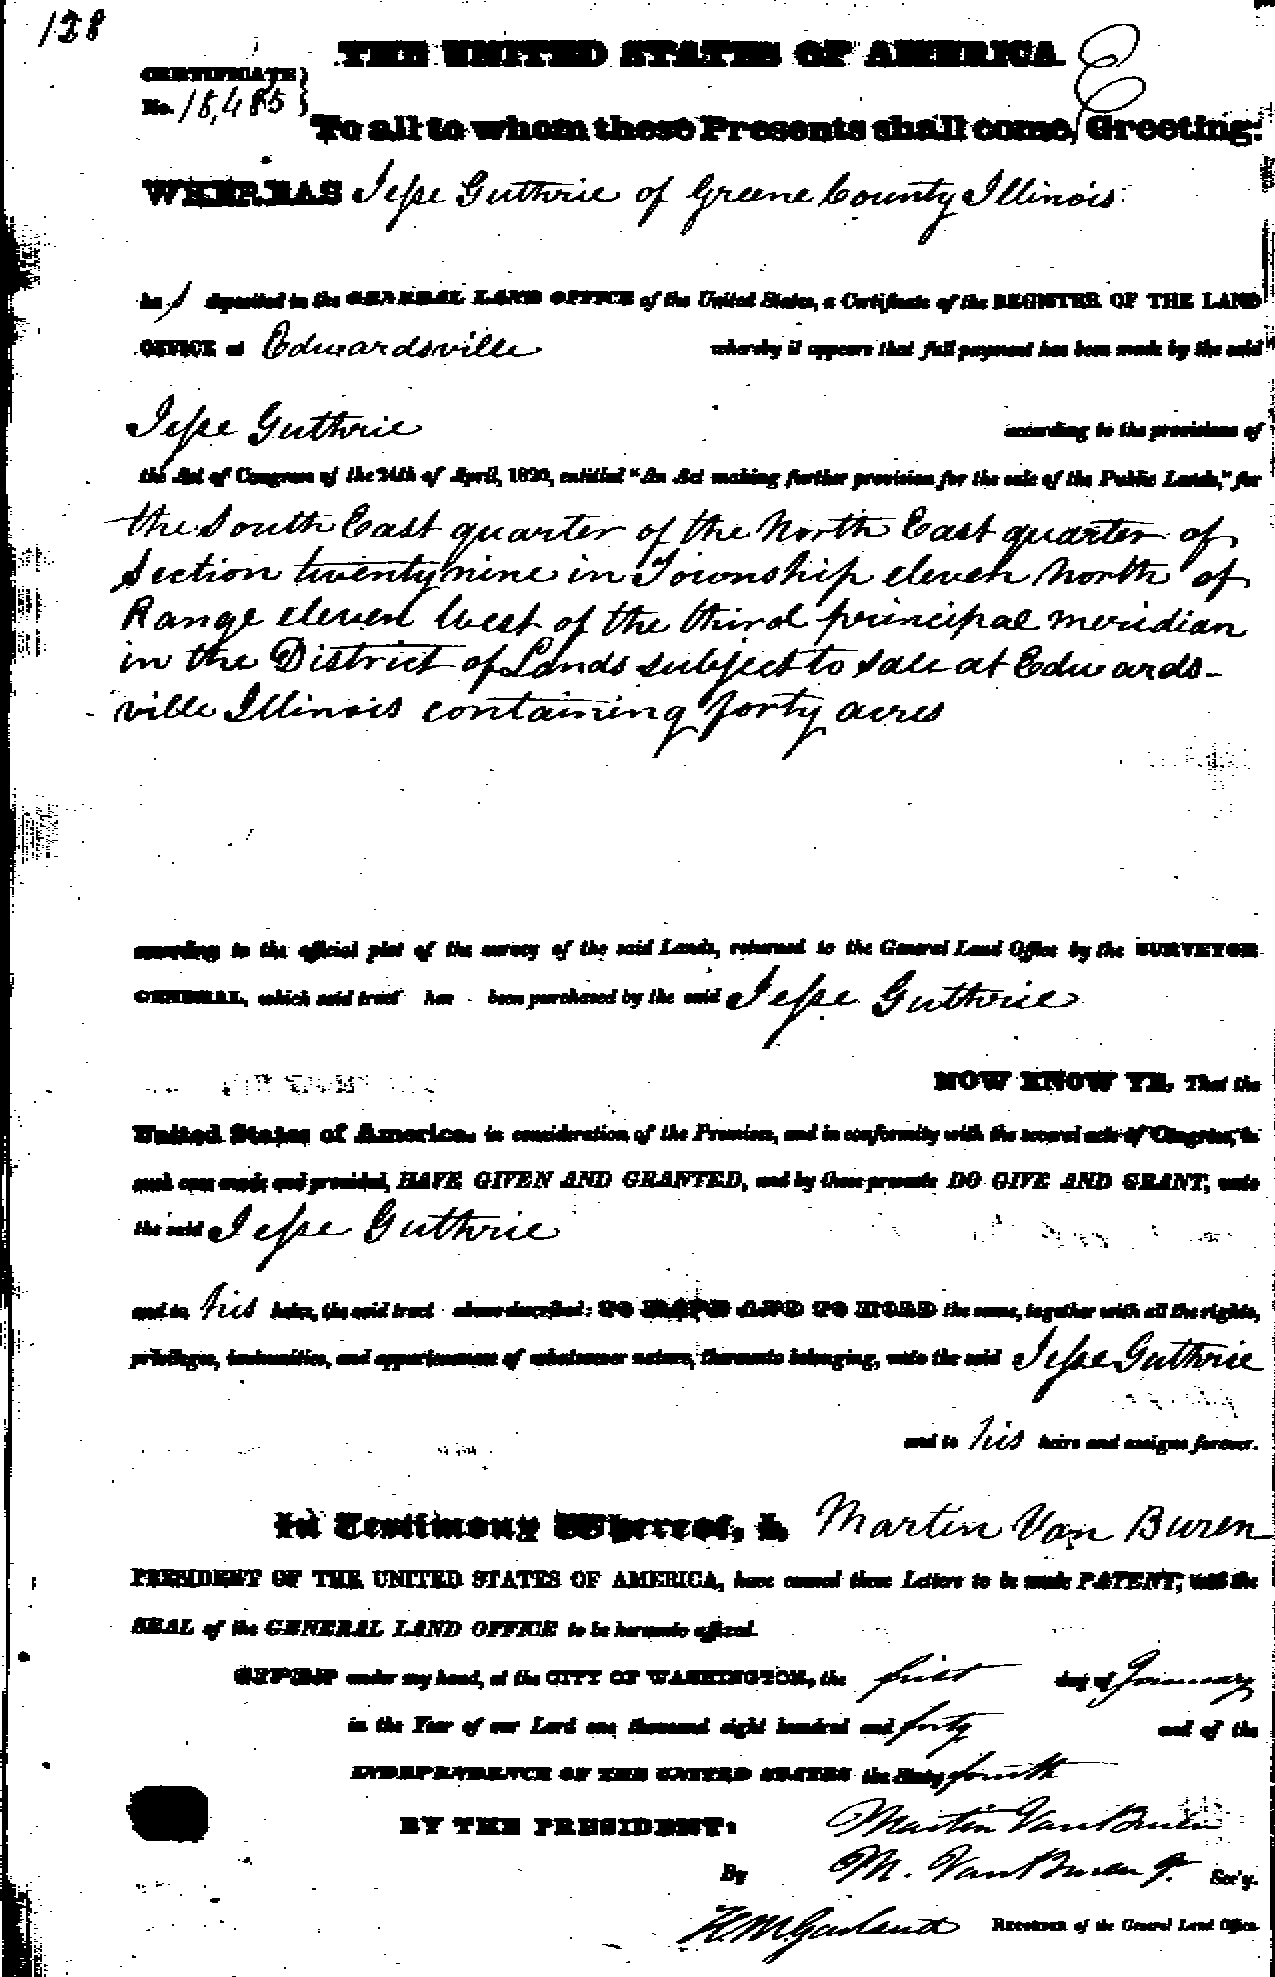 128
THE UNITED STATES OF AMERICA. E
CERTIFICATE
No. 18,485
To all to whom these Presents shall come, Greeting:
WHEREAS Jesse Guthrie of Greene County Illinois
has deposited in the GENERAL LAND OFFICE of the United States, a Certificate of the REGISTER OF THE LAND
OFFICE at Edwardsville whereby it appears that full payment has been made by the said
Jesse Guthrie according to the provisions of
the Act of Congress of the 24th of April, 1820, entitled "An Act making further provision for the sale of the Public Lands," for
the South East quarter of the North East quarter of
Section twenty nine in Township eleven North of
Range eleven West of the third principal meridian
in the District of Lands subject to sale at Edwards-
ville Illinois containing forty acres
according to the official plat of the survey of the said Lands, returned to the General Land Office by the SURVEYOR
GENERAL, which said tract has been purchased by the said Jesse Guthrie
NOW KNOW YE, That the
United States of America, in consideration of the Premises, and in conformity with the several acts of Congress, in
such case made and provided, HAVE GIVEN AND GRANTED, and by these presents DO GIVE AND GRANT, unto
the said Jesse Guthrie
and to his heirs, the said tract above described: TO HAVE AND TO HOLD the same, together with all the rights,
privileges, immunities, and appurtenances of whatsoever nature, thereunto belonging, unto the said Jesse Guthrie
and to his heirs and assigns forever.
In Testimony Whereof, I, Martin Van Buren
PRESIDENT OF THE UNITED STATES OF AMERICA, have caused these Letters to be made PATENT, and the
SEAL of the GENERAL LAND OFFICE to be hereunto affixed.
GIVEN under my hand, at the CITY OF WASHINGTON, the first day of January
in the Year of our Lord one thousand eight hundred and forty and of the
INDEPENDENCE OF THE UNITED STATES the Sixty fourth
BY THE PRESIDENT: Martin Van Buren
By M. Van Buren Jr. Sec'y.
H. M. Garland RECORDER of the General Land Office.